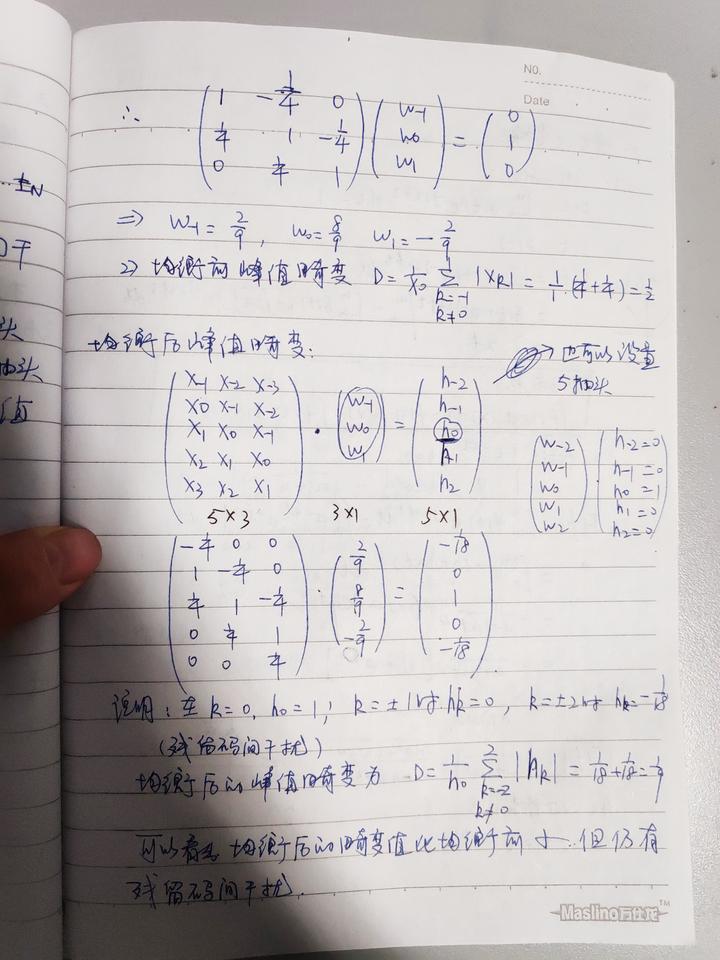 N0.
Date
∴ ( 1 -1/4 0 ; 1/4 1 -1/4 ; 0 1/4 1 ) ( W-1 ; W0 ; W1 ) = ( 0 ; 1 ; 0 )
⇒ W-1 = 2/9, W0 = 8/9 W1 = -2/9
2) 均衡前峰值畸变 D = 1/X0 Σ(k=-1, k≠0)^1 |Xk| = 1/1·(1/4+1/4) = 1/2
均衡后峰值畸变:
→ 也可以设置
5抽头
( X-1 X-2 X-3 ; X0 X-1 X-2 ; X1 X0 X-1 ; X2 X1 X0 ; X3 X2 X1 ) · ( W-1 ; W0 ; W1 ) = ( h-2 ; h-1 ; h0 ; h1 ; h2 )
( W-2 ; W-1 ; W0 ; W1 ; W2 ) · ( h-2=0 ; h-1=0 ; h0=1 ; h1=0 ; h2=0 )
5×3 3×1 5×1
( -1/4 0 0 ; 1 -1/4 0 ; 1/4 1 -1/4 ; 0 1/4 1 ; 0 0 1/4 ) · ( 2/9 ; 8/9 ; -2/9 ) = ( -1/18 ; 0 ; 1 ; 0 ; -1/18 )
说明: 在 k=0, h0=1; k=±1时 hk=0, k=±2时 hk=-1/18
(残留码间干扰)
均衡后的峰值畸变为 D = 1/h0 Σ(k=-2, k≠0)^2 |hk| = 1/18+1/18=1/9
可以看出 均衡后的畸变值比均衡前小, 但仍有
残留码间干扰.
Maslino万仕龙 TM
±N
干
头
抽头